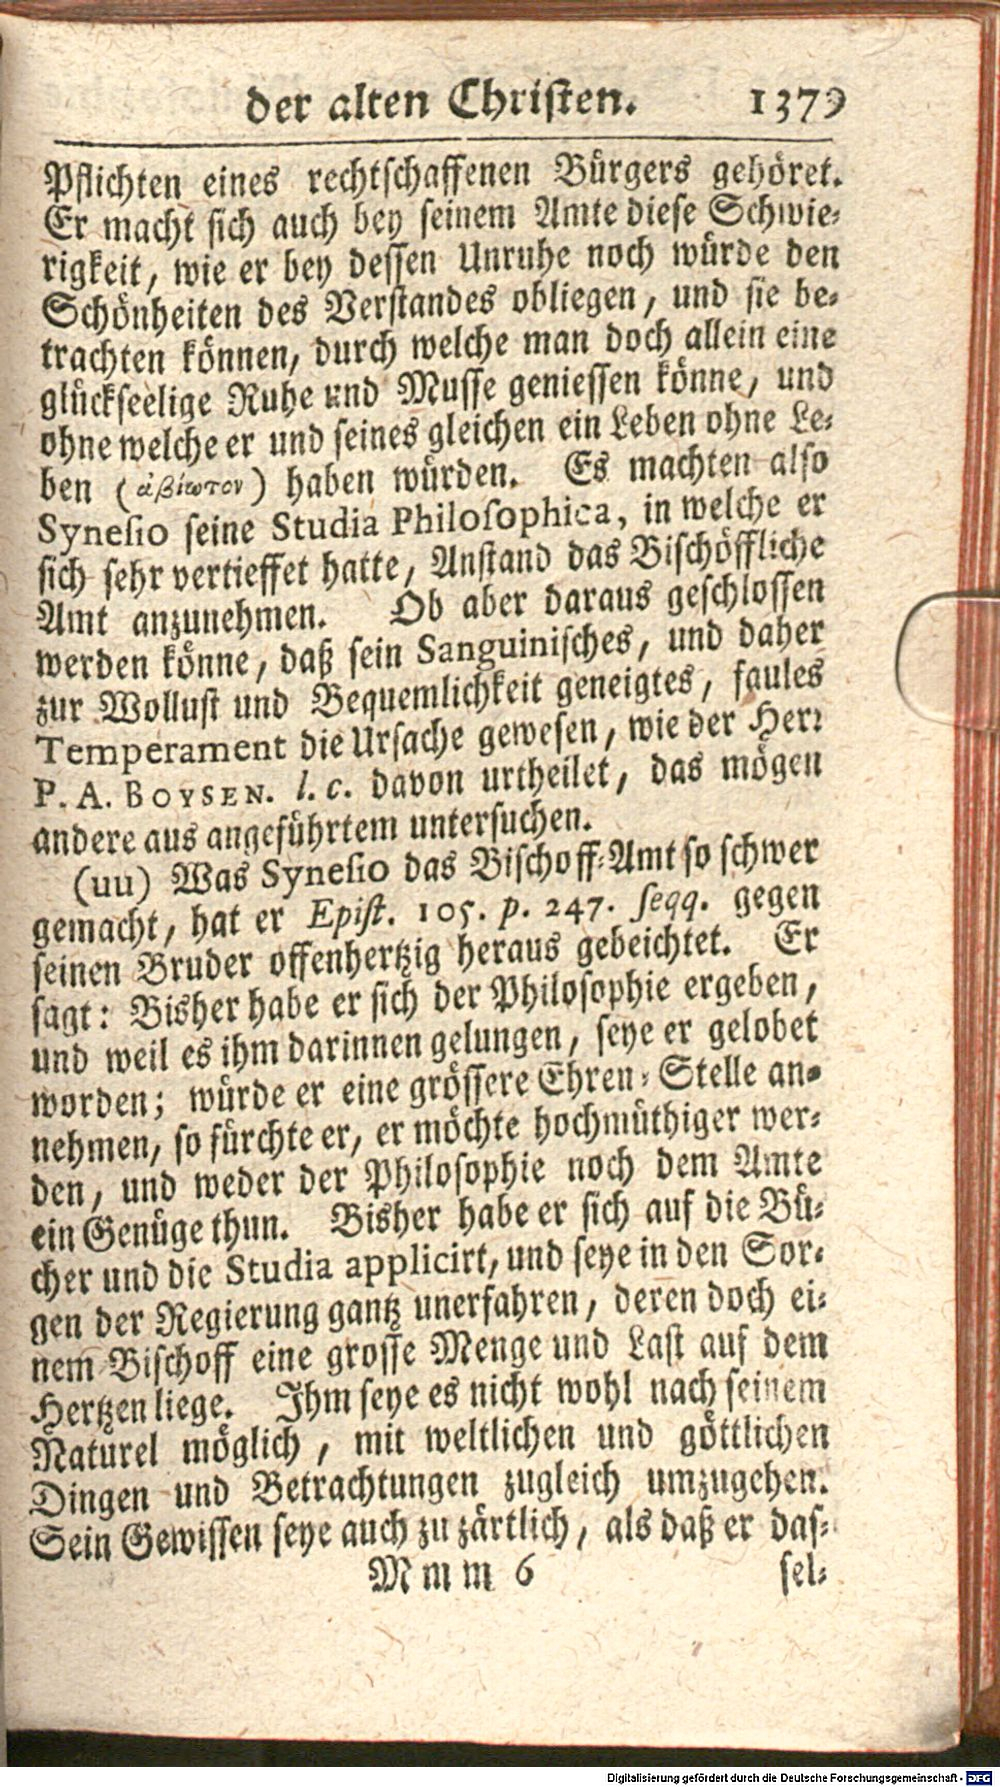 der alten Christen. 1379
Pflichten eines rechtschaffenen Bürgers gehöret.
Er macht sich auch bey seinem Amte diese Schwie-
rigkeit, wie er bey dessen Unruhe noch würde den
Schönheiten des Verstandes obliegen, und sie be-
trachten können, durch welche man doch allein eine
glückseelige Ruhe und Musse geniessen könne, und
ohne welche er und seines gleichen ein Leben ohne Le-
ben (ἀβίωτον) haben würden. Es machten also
Synesio seine Studia Philosophica, in welche er
sich sehr vertieffet hatte, Anstand das Bischöffliche
Amt anzunehmen. Ob aber daraus geschlossen
werden könne, daß sein Sanguinisches, und daher
zur Wollust und Bequemlichkeit geneigtes, faules
Temperament die Ursache gewesen, wie der Herr
P. A. BOYSEN. l. c. davon urtheilet, das mögen
andere aus angeführtem untersuchen.
(uu) Was Synesio das Bischoff-Amt so schwer
gemacht, hat er Epist. 105. p. 247. seqq. gegen
seinen Bruder offenhertzig heraus gebeichtet. Er
sagt: Bisher habe er sich der Philosophie ergeben,
und weil es ihm darinnen gelungen, seye er gelobet
worden; würde er eine grössere Ehren-Stelle an-
nehmen, so fürchte er, er möchte hochmüthiger wer-
den, und weder der Philosophie noch dem Amte
ein Genüge thun. Bisher habe er sich auf die Bü-
cher und die Studia applicirt, und seye in den Sor-
gen der Regierung gantz unerfahren, deren doch ei-
nem Bischoff eine grosse Menge und Last auf dem
Hertzen liege. Ihm seye es nicht wohl nach seinem
Naturel möglich, mit weltlichen und göttlichen
Dingen und Betrachtungen zugleich umzugehen.
Sein Gewissen seye auch zu zärtlich, als daß er das-
Mmm 6 sel-
Digitalisierung gefördert durch die Deutsche Forschungsgemeinschaft - DFG